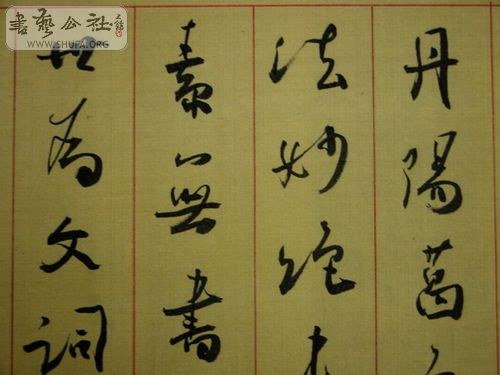 書藝公社
WWW.SHUFA.ORG
丹陽葛
法妙絕
素無書
世為文詞